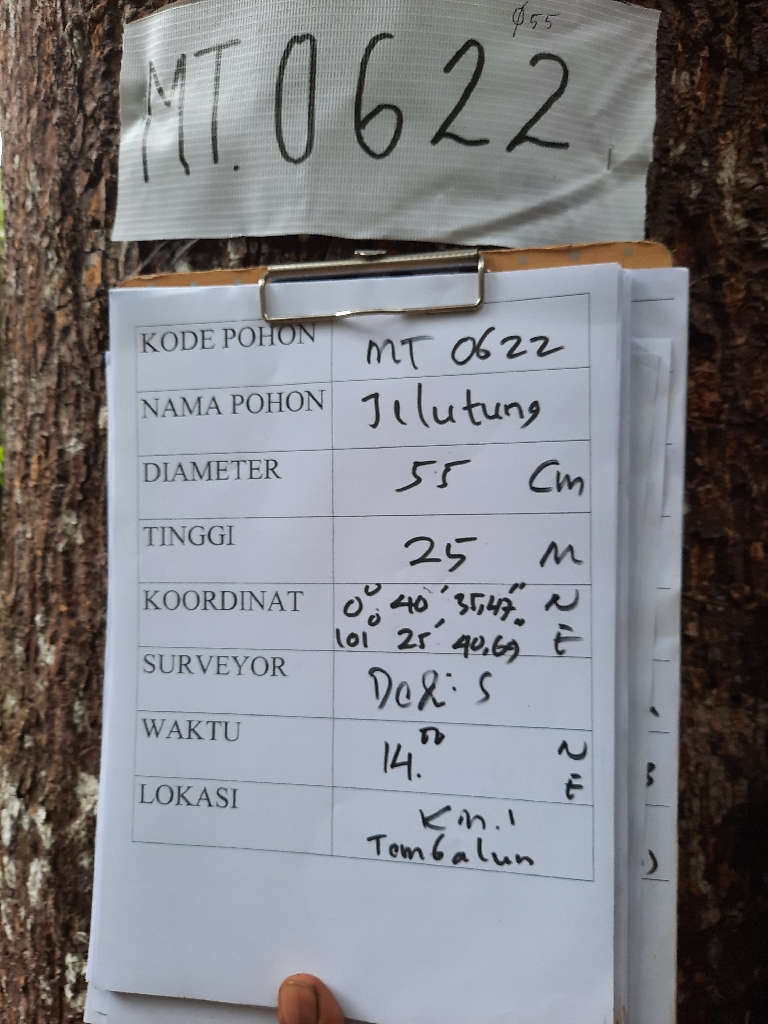 Ø55
MT. 0622
KODE POHON MT 0622
NAMA POHON Jelutung
DIAMETER 55 Cm
TINGGI 25 M
KOORDINAT 0° 40' 35,47" N
101° 25' 40,69" E
SURVEYOR
WAKTU 14.00 N
E
LOKASI Km.1
Tembalun